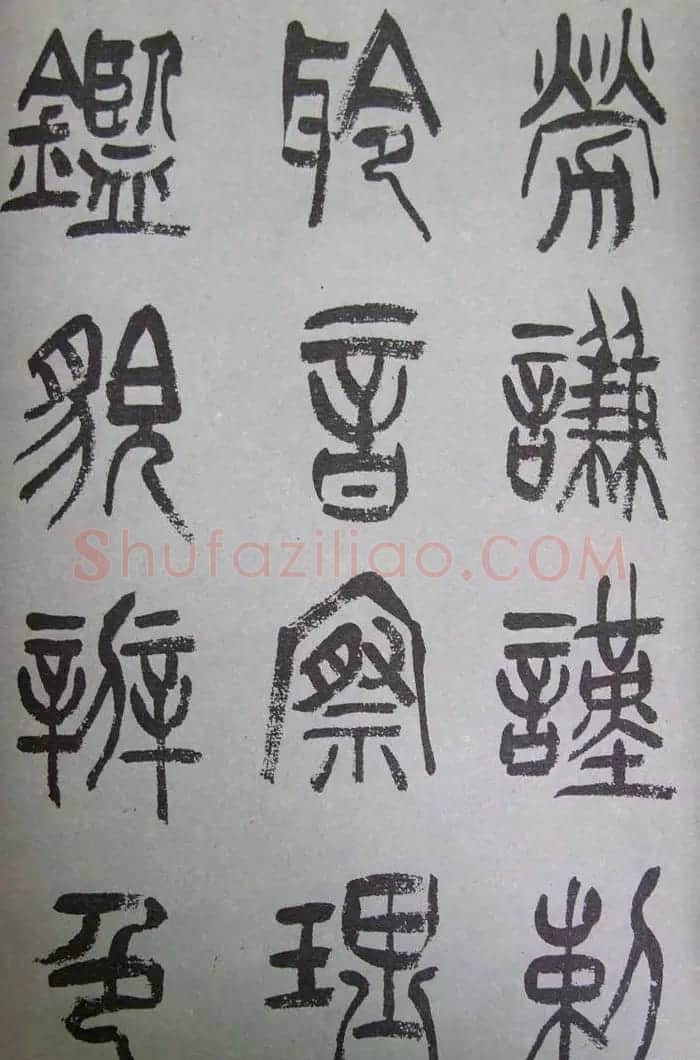 勞謙謹勅
聆音察理
鑑貌辨色
Shufaziliao.COM